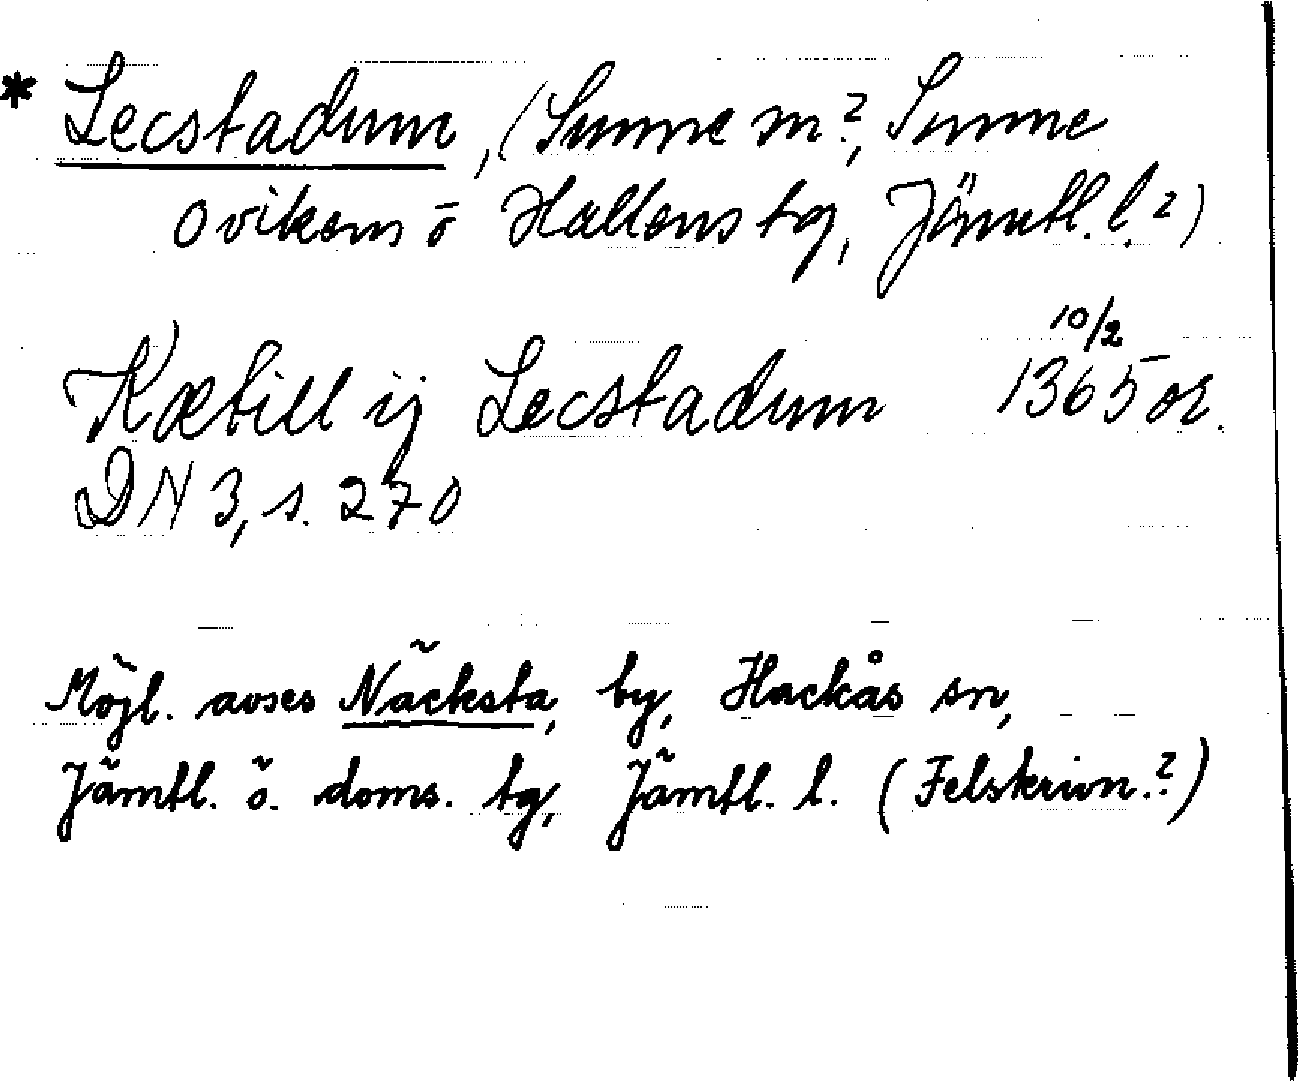 * Lecstadum, (Sunne sn?, Sunne
Ovikens ö Hallens tg, Jämtl. l.?)
Kætill ij Lecstadum 10/2 1365 or.
DN 3, s. 270
Möjl. avses Näcksta, by, Hackås sn,
Jämtl. ö. doms. tg, Jämtl. l. (Felskrivn.?)